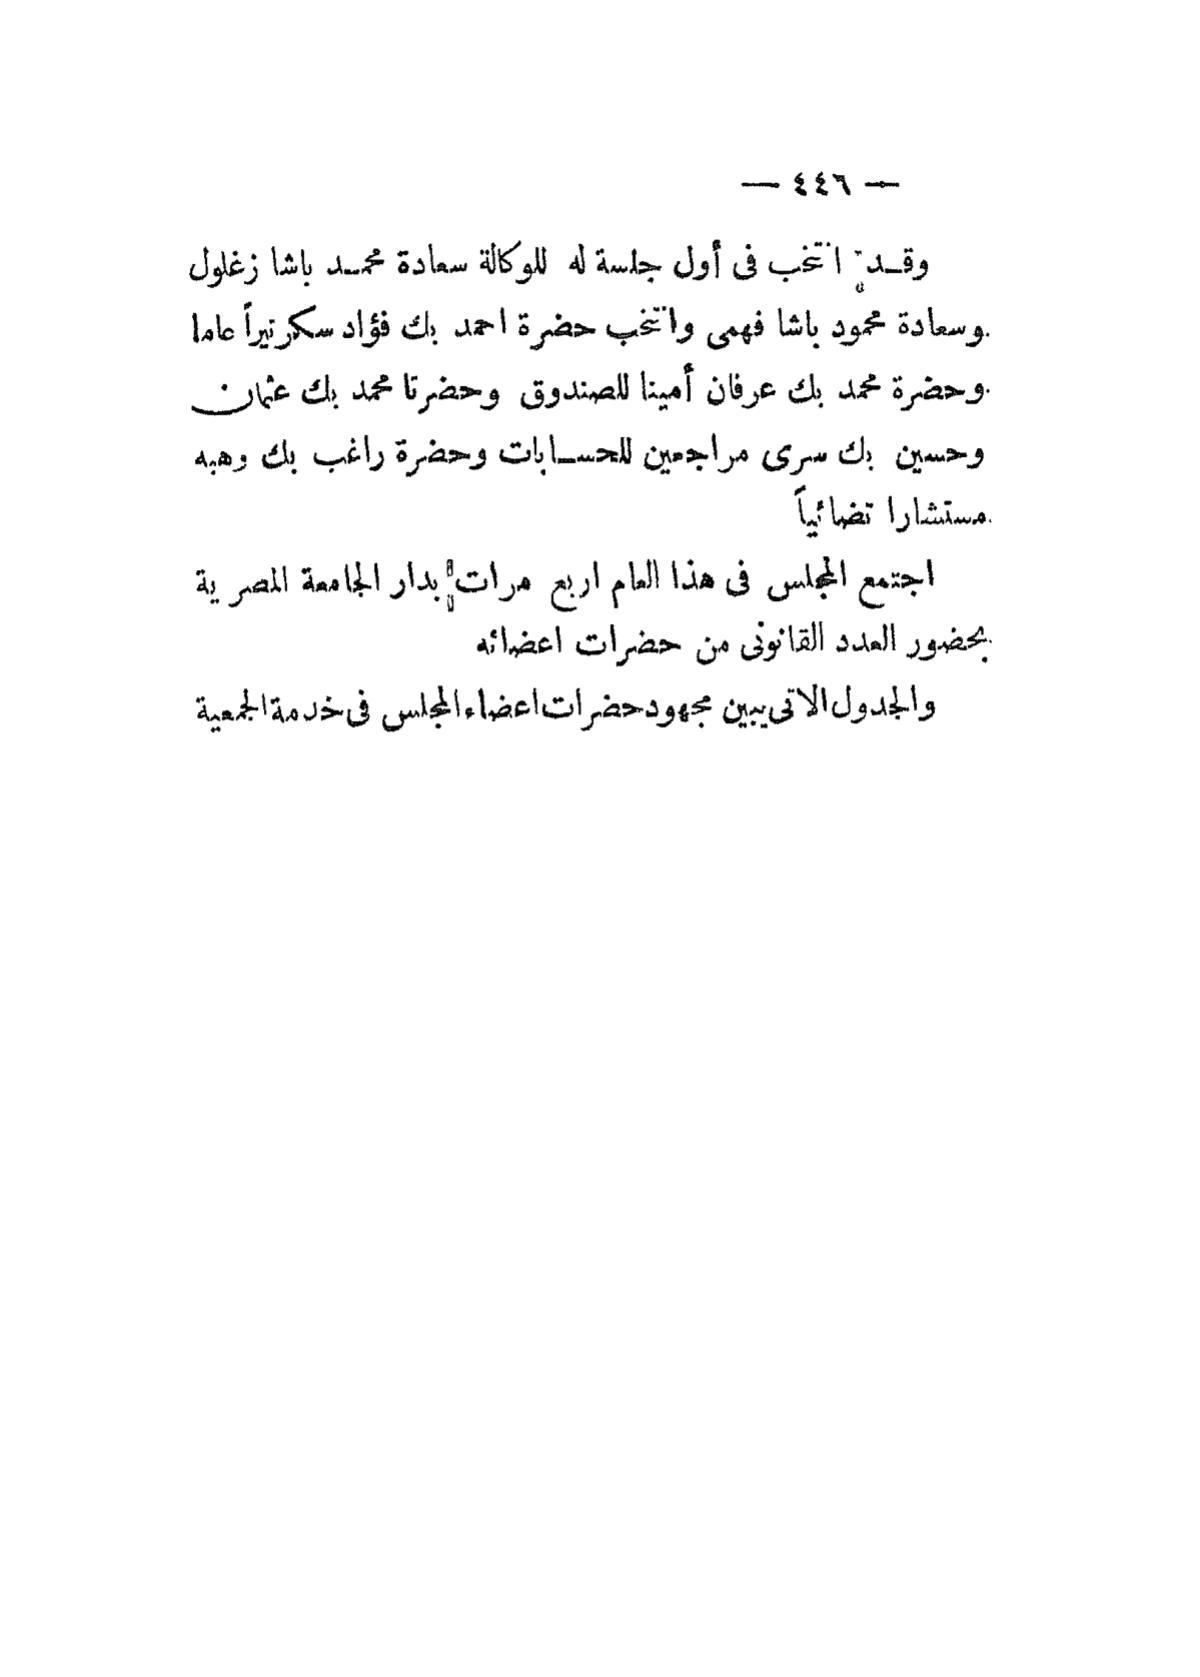 — ٤٤٦ —
وقد انتخب فى أول جلسة له للوكالة سعادة محمد باشا زغلول
وسعادة محمود باشا فهمى وانتخب حضرة احمد بك فؤاد سكرتيراً عاما
وحضرة محمد بك عرفان أمينا للصندوق وحضرتا محمد بك عثمان
وحسين بك سرى مراجعين للحسابات وحضرة راغب بك وهبه
مستشارا قضائياً
اجتمع المجلس فى هذا العام اربع مرات بدار الجامعة المصرية
بحضور العدد القانونى من حضرات اعضائه
والجدول الاتى يبين مجهود حضرات اعضاء المجلس فى خدمة الجمعية